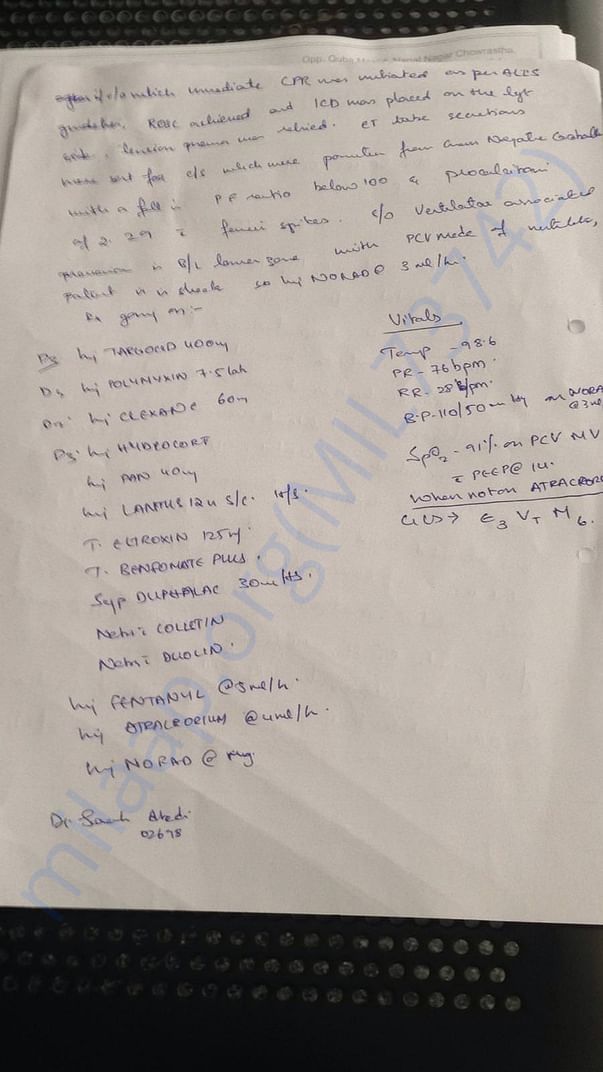 Opp. Quba Nagar Chowrastha,
which immediate CPR was initiated as per ACLS
guidelines. ROSC achieved and ICD was placed on the left
side, tension pneumo was relieved. ET tube secretions
were sent for c/s which were positive from Gram Negative
with a fall in PF ratio below 100 & procalcitonin
of 2.29 c fever spikes. s/o Ventilator associated
pneumonia in B/L lower zone with PCV mode of ventilator,
patient is in shock so Inj NORAD @ 3 ml/hr.
Rx going on :-
Inj TARGOCID 400mg
Inj POLYMYXIN 7.5 lakh
Inj CLEXANE 60
Inj HYDROCORT
Inj PAN 40mg
Inj LANTUS 12u S/C. H/S.
T. ELTROXIN 125
T. BENFOMATE PLUS.
Syp DUPHALAC 30ml HS.
Neb c COLLETIN
Neb c DUOLIN.
Inj FENTANYL @5ml/h.
Inj ATRACRORIUM @4ml/h.
Inj NORAD @
Dr
02698
Vitals
Temp - 98.6
PR - 76 bpm.
RR - 28 /pm.
B.P - 110/50 on NORAD
@3ml
SpO2 - 91% on PCV MV
c PEEP @ 14.
When not on ATRACRORIUM
GCS → E3 VT M6.
milaap.org(MIL73742)